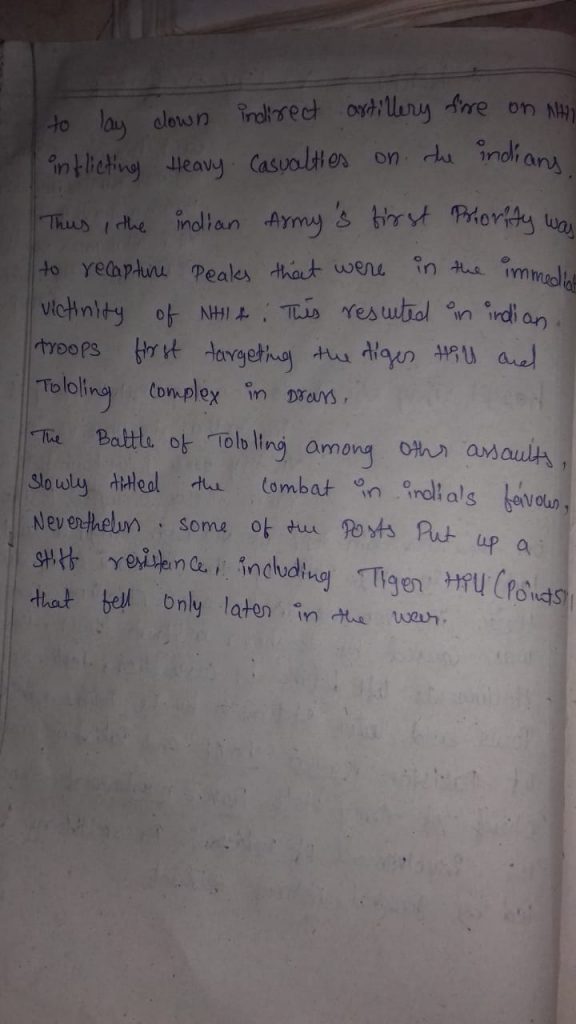 to lay down indirect artillery fire on NH1
inflicting Heavy Casualties on the indians.
Thus, the indian Army's first Priority was
to recapture Peaks that were in the immediat
victinity of NH1A. This resulted in indian
troops first targeting the tiger Hill and
Tololing Complex in Drars.
The Battle of Tololing among other assaults,
slowly titled the Combat in india's favour,
Nevertheless. some of the Posts Put up a
stiff resistance, including Tiger Hill (Point5
that fell only later in the war.